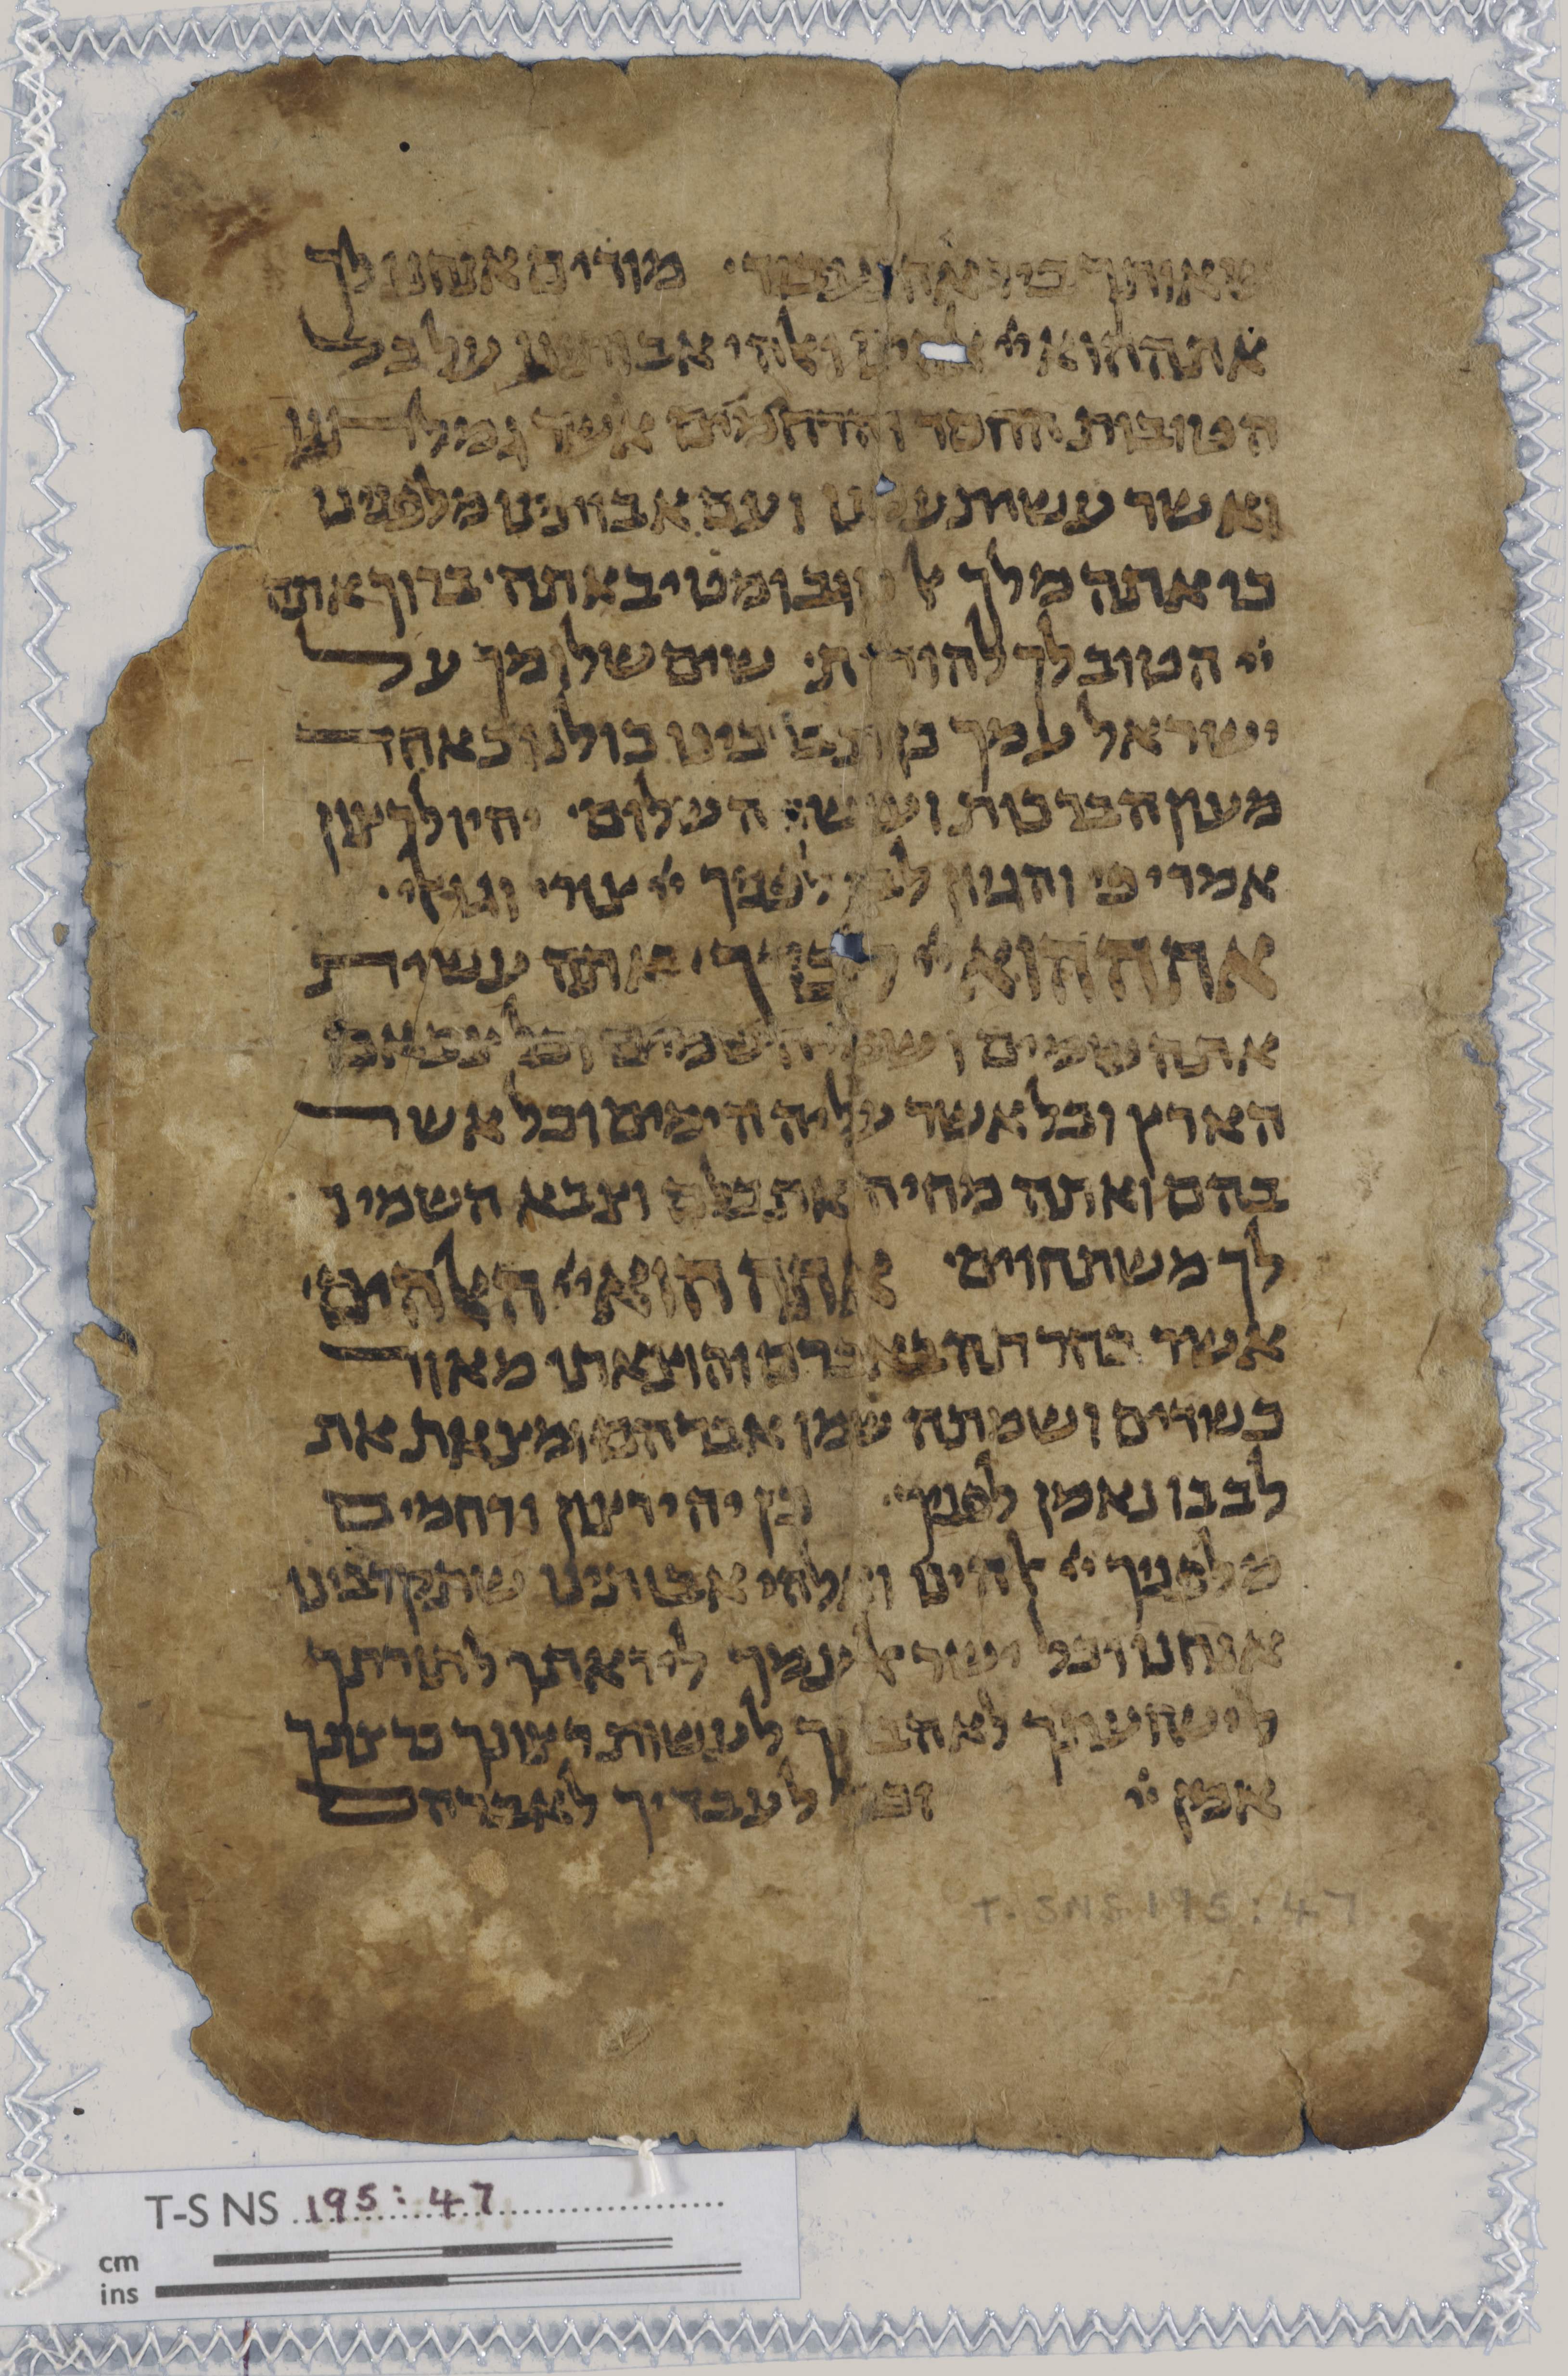 שאותך ביראה נעבוד׃ מודים אנחנו לך
אתה הוא יי אלהינו ואלהי אבותינו על כל
הטובות החסד והרחמים אשר גמלתנו
ואשר עשית עמנו ועם אבותינו מלפנינו
כי אתה מלך אל טוב ומטיב אתה׳ ברוך אתה
יי הטוב לך להודות׳ שים שלומך על
ישראל עמך וברכינו כולנו כאחד
מעון הברכות ועושי השלום׳ יהיו לרצון
אמרי פי והגיון לבי לפניך יי צורי וגואלי׳
אתה הוא יי לבדיך אתה עשית
את השמים ושמי השמים וכל צבאם
הארץ וכל אשר עליה הימים וכל אשר
בהם ואתה מחיה את כלם וצבא השמים
לך משתחוים׳ אתה הוא יי האלהים׳
אשר בחרתה באברם והוצאתו מאור
כשדים ושמתה שמו אברהם ומצאת את
לבבו נאמן לפניך׳ כן יהי רצון ורחמים
מלפניך יי אלהינו ואלהי אבותינו שתקרבינו
אנחנו וכל ישראל עמך ליראתך לתורתך
לישועתך לאהבתך לעשות רצונך כרצונך
אמן יי זכר לעבדיך לאברהם
T-S NS 195:47
T-S NS 195:47
cm
ins